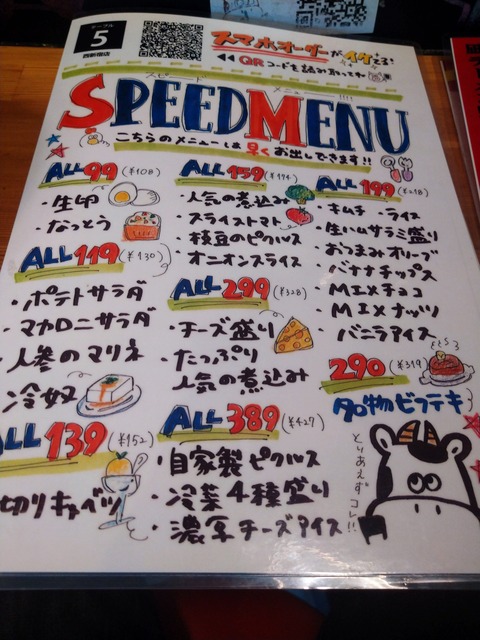 テーブル
5
西新宿店
スマホオーダーがイケる!
◀◀QRコードを読み取って
スピード メニュー!!!!
SPEEDMENU
こちらのメニューは早くお出しできます!!
ALL 99 (¥108)
・生卵
・なっとう
ALL 119 (¥130)
・ポテトサラダ
・マカロニサラダ
・人参のマリネ
・冷奴
ALL 139 (¥152)
切りキャベツ
ALL 159 (¥174)
・人気の煮込み
・スライストマト
・枝豆のピクルス
・オニオンスライス
ALL 299 (¥328)
・チーズ盛り
・たっぷり
人気の煮込み
ALL 389 (¥427)
・自家製ピクルス
・冷菜4種盛り
・濃厚チーズアイス
ALL 199 (¥218)
・キムチ ・ライス
・生ハムサラミ盛り
・おつまみオリーブ
・バナナチップス
・MIXチョコ
・MIXナッツ
・バニラアイス
290 (¥319)
名物ビフテキ
とりあえずコレ!!